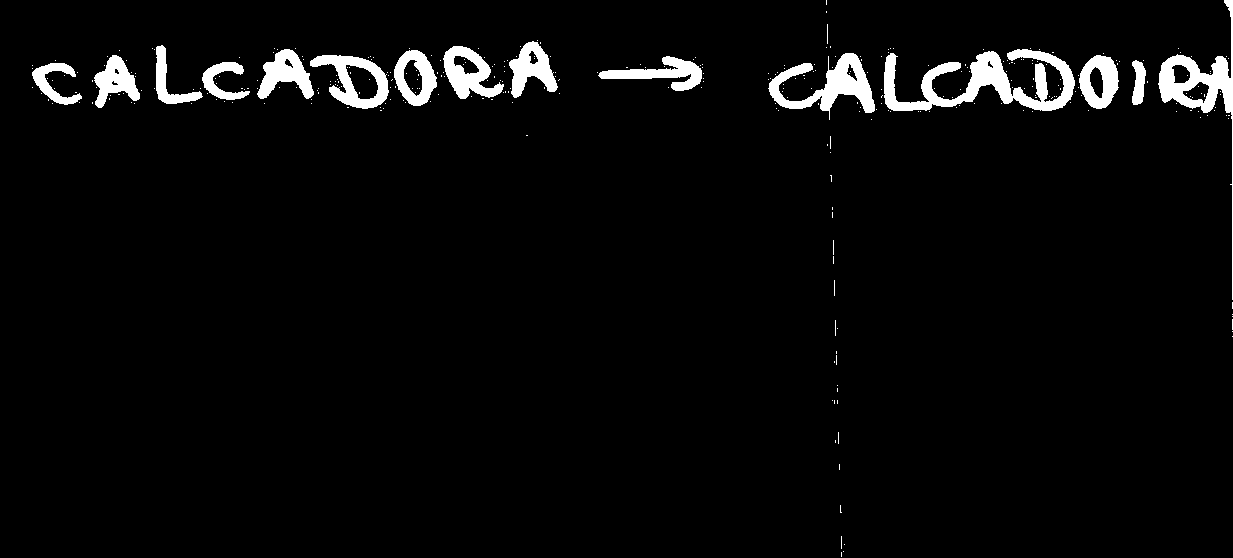 CALCADORA → CALCADOIRA